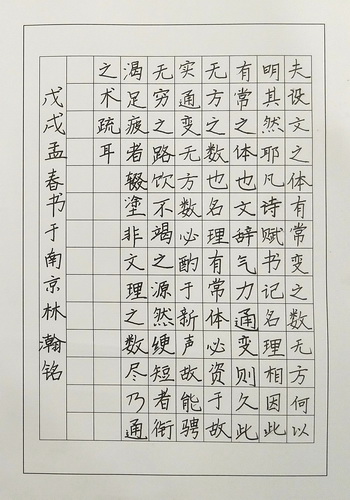 夫设文之体有常变之数无方何以
明其然耶凡诗赋书记名理相因此
有常之体也文辞气力通变则久此
无方之数也名理有常体必资于故
实通变无方数必酌于新声故能骋
无穷之路饮不竭之源然绠短者衔
渴足疲者辍塗非文理之数尽乃通
之术疏耳
戊戌孟春书于南京林瀚铭